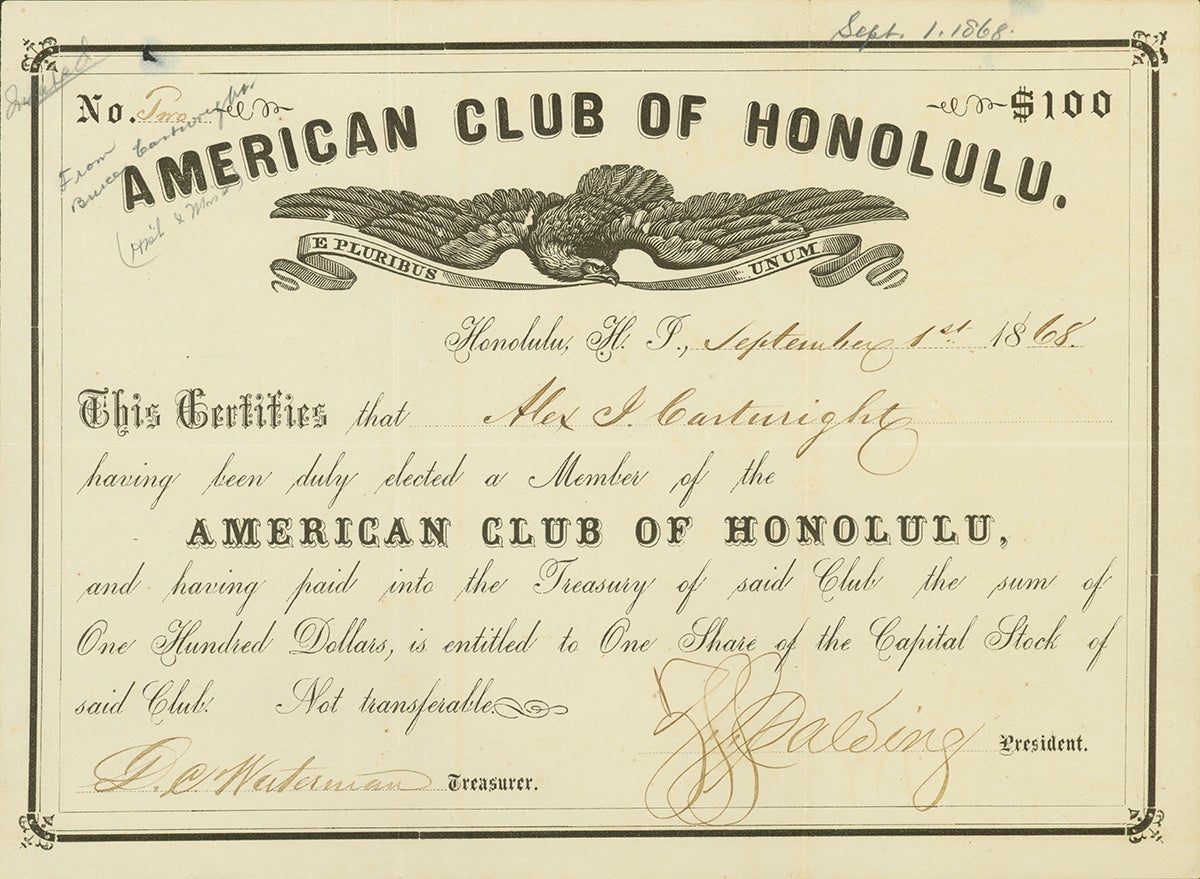 Sept. 1. 1868.
No. Two
$100
From
Bruce Cartwright
AMERICAN CLUB OF HONOLULU.
E PLURIBUS UNUM
Honolulu, H. I., September 1st. 1868.
This Certifies that Alex J. Cartwright
having been duly elected a Member of the
AMERICAN CLUB OF HONOLULU,
and having paid into the Treasury of said Club the sum of
One Hundred Dollars, is entitled to One Share of the Capital Stock of
said Club. Not transferable.
Spalding President.
D. C. Waterman Treasurer.